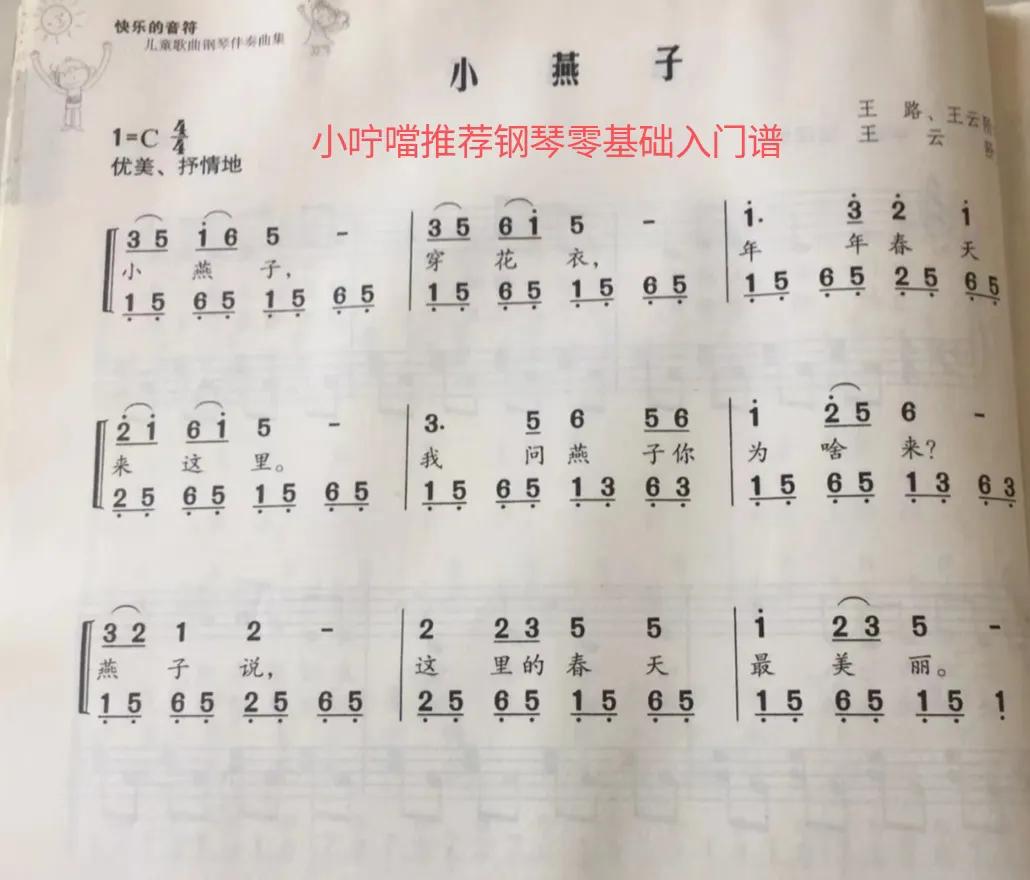 快乐的音符
儿童歌曲钢琴伴奏曲集
小 燕 子
1=C 4/4
优美、抒情地
小咛噹推荐钢琴零基础入门谱
王 路、王云
王 云
3 5 i 6 5 - | 3 5 6 i 5 - | i· 3̇ 2̇ i
小 燕 子, 穿 花 衣, 年 年 春 天
1̣ 5̣ 6̣ 5̣ 1̣ 5̣ 6̣ 5̣ | 1̣ 5̣ 6̣ 5̣ 1̣ 5̣ 6̣ 5̣ | 1̣ 5̣ 6̣ 5̣ 2̣ 5̣ 6̣ 5̣
2̇ i 6 i 5 - | 3· 5 6 5 6 | i 2̇ 5 6 -
来 这 里。 我 问 燕 子 你 为 啥 来?
2̣ 5̣ 6̣ 5̣ 1̣ 5̣ 6̣ 5̣ | 1̣ 5̣ 6̣ 5̣ 1̣ 3̣ 6̣ 3̣ | 1̣ 5̣ 6̣ 5̣ 1̣ 3̣ 6̣ 3̣
3 2 1 2 - | 2 2 3 5 5 | i 2 3 5 -
燕 子 说, 这 里 的 春 天 最 美 丽。
1̣ 5̣ 6̣ 5̣ 2̣ 5̣ 6̣ 5̣ | 2̣ 5̣ 6̣ 5̣ 1̣ 5̣ 6̣ 5̣ | 1̣ 5̣ 6̣ 5̣ 1̣ 5̣ 1̣